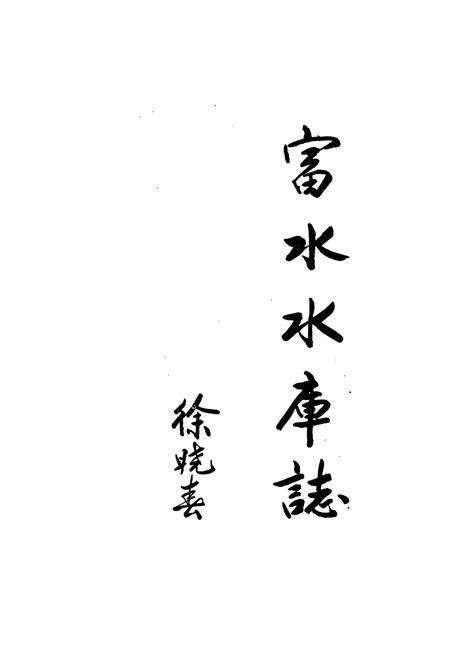 富水水庫誌
徐晓春